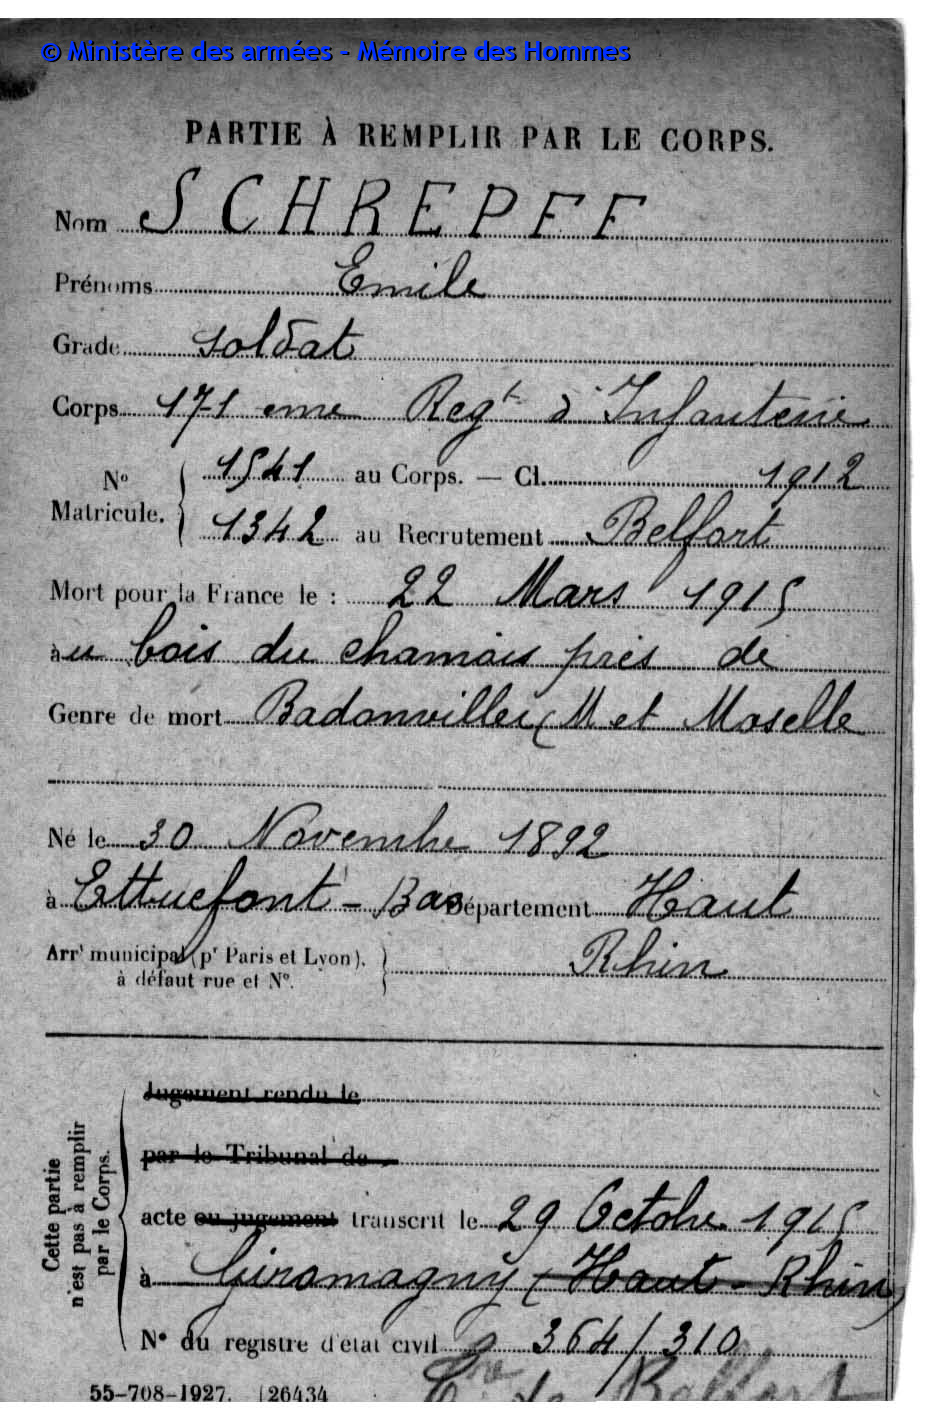 © Ministère des armées - Mémoire des Hommes
PARTIE À REMPLIR PAR LE CORPS.
Nom SCHREPFF
Prénoms Emile
Grade soldat
Corps 171 eme Regt d'Infanterie
No Matricule. 1541 au Corps. — Cl. 1912
1342 au Recrutement Belfort
Mort pour la France le : 22 Mars 1915
àu bois du chamois près de
Genre de mort Badonviller (M et Moselle
Né le 30 Novembre 1892
à Ettuefont - Bas Département Haut
Arrt municipal (pr Paris et Lyon), Rhin
à défaut rue et No.
Cette partie n'est pas à remplir par le Corps.
Jugement rendu le
par le Tribunal de
acte ou jugement transcrit le 29 Octobre 1915
à Giromagny (Haut-Rhin)
No du registre d'état civil 364/310
55-708-1927. [26434 Cre de Belfort